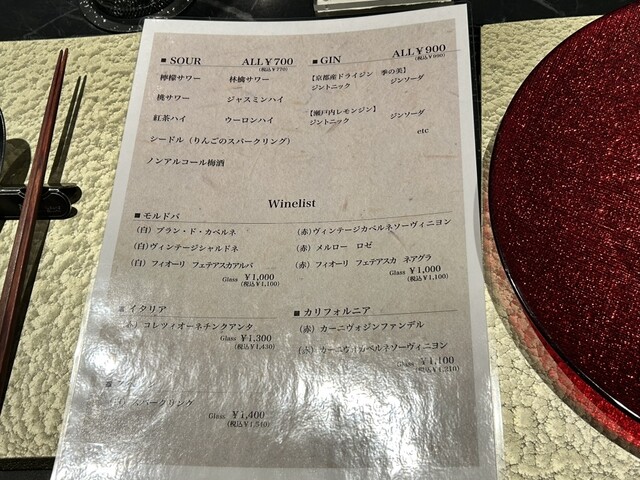 ■ SOUR ALL￥700
(税込￥770)
檸檬サワー 林檎サワー
桃サワー ジャスミンハイ
紅茶ハイ ウーロンハイ
シードル（りんごのスパークリング）
ノンアルコール梅酒
■ GIN ALL￥900
(税込￥990)
【京都産ドライジン 季の美】
ジントニック ジンソーダ
【瀬戸内レモンジン】
ジントニック ジンソーダ
etc
Winelist
■ モルドバ
（白）ブラン・ド・カベルネ （赤）ヴィンテージカベルネソーヴィニヨン
（白）ヴィンテージシャルドネ （赤）メルロー ロゼ
（白）フィオーリ フェテアスカアルバ （赤）フィオーリ フェテアスカ ネアグラ
Glass ￥1,000 Glass ￥1,000
(税込￥1,100) (税込￥1,100)
■ イタリア
（赤）コレツィオーネチンクアンタ
Glass ￥1,300
(税込￥1,430)
■ カリフォルニア
（赤）カーニヴォジンファンデル
（赤）カーニヴォカベルネソーヴィニヨン
￥1,100
(税込￥1,210)
スパークリング
Glass ￥1,400
(税込￥1,540)